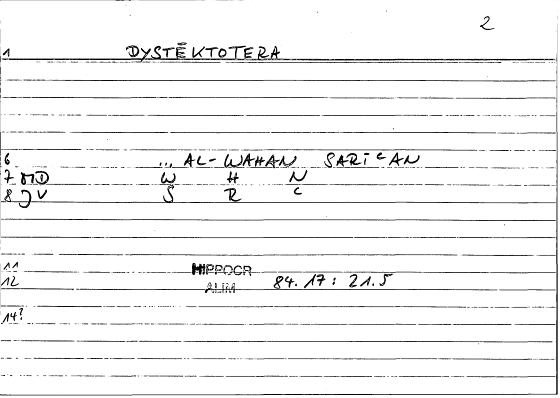 2
1 DYSTĒKTOTERA
6 ... AL-WAHAN SARĪʿAN
7 MD W H N
8 JV S R ʿ
11 HIPPOCR
12 ALIM 84.17 : 21.5
14?